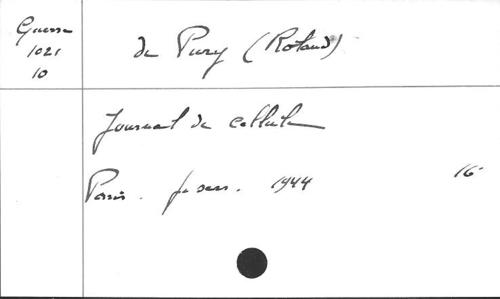 Guerre
1021
10
de Pury (Roland)
Journal de cellule
Paris. 1944 16